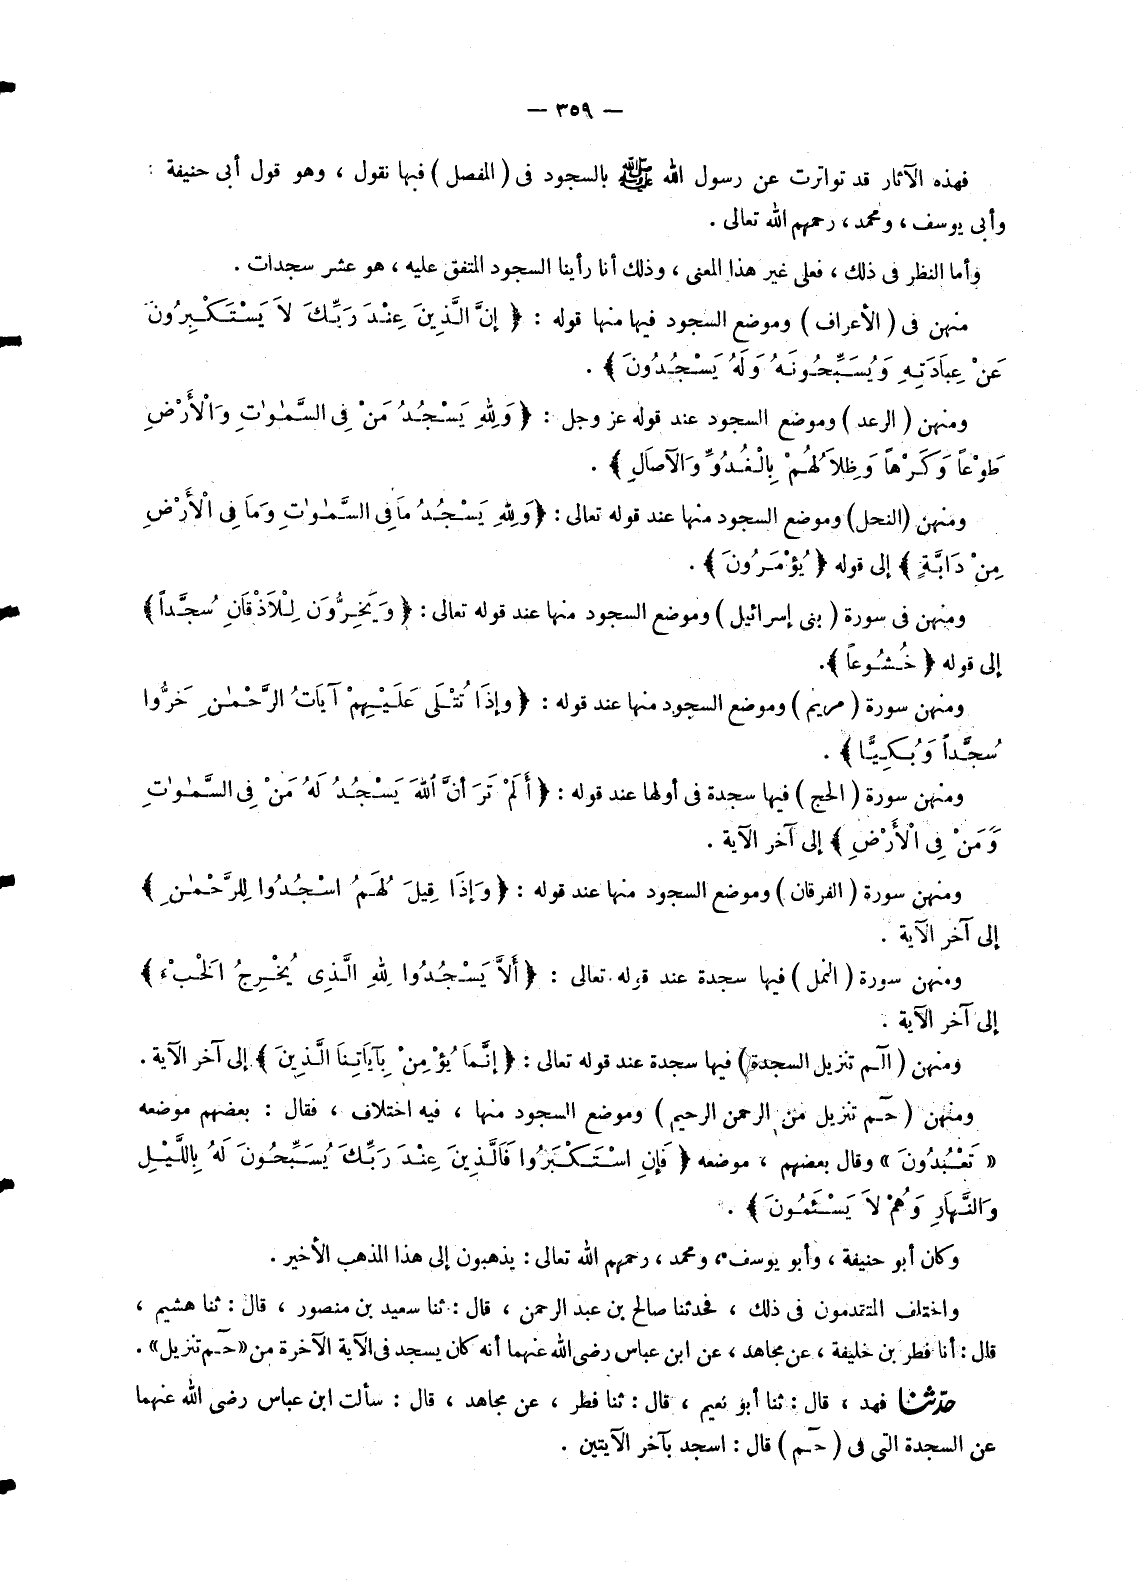 — ٣٥٩ —
فهذه الآثار قد تواترت عن رسول الله ﷺ بالسجود فى ( المفصل ) فبها نقول ، وهو قول أبى حنيفة :
وأبى يوسف ، ومحمد ، رحمهم الله تعالى .
وأما النظر فى ذلك ، فعلى غير هذا المعنى ، وذلك أنا رأينا السجود المتفق عليه ، هو عشر سجدات .
منهن فى ( الأعراف ) وموضع السجود فيها منها قوله : ﴿ إنَّ الَّذِينَ عِنْدَ رَبِّكَ لاَ يَسْتَكْبِرُونَ
عَنْ عِبَادَتِهِ وَيُسَبِّحُونَهُ وَلَهُ يَسْجُدُونَ ﴾ .
ومنهن ( الرعد ) وموضع السجود عند قوله عز وجل : ﴿ وَلِلهِ يَسْجُدُ مَنْ فِى السَّمٰوٰتِ وَالْأَرْضِ
طَوْعاً وَكَرْهاً وَظِلاَلُهُمْ بِالْغُدُوِّ وَالْآصَالِ ﴾ .
ومنهن (النحل) وموضع السجود منها عند قوله تعالى : ﴿وَلِلهِ يَسْجُدُ مَا فِى السَّمٰوٰتِ وَمَا فِى الْأَرْضِ
مِنْ دَابَّةٍ ﴾ إلى قوله ﴿ يُؤْمَرُونَ ﴾ .
ومنهن فى سورة ( بنى إسرائيل ) وموضع السجود منها عند قوله تعالى : ﴿ وَيَخِرُّونَ لِلْأَذْقَانِ سُجَّداً ﴾
إلى قوله ﴿ خُشُوعاً ﴾.
ومنهن سورة ( مريم ) وموضع السجود منها عند قوله : ﴿ وإذَا تُتْلَى عَلَيْهِمْ آيَاتُ الرَّحْمٰنِ خَرُّوا
سُجَّداً وَبُكِيًّا ﴾ .
ومنهن سورة ( الحج ) فيها سجدة فى أولها عند قوله : ﴿ أَلَمْ تَرَ أنَّ اللهَ يَسْجُدُ لَهُ مَنْ فِى السَّمٰوٰتِ
وَمَنْ فِى الْأَرْضِ ﴾ إلى آخر الآية .
ومنهن سورة ( الفرقان ) وموضع السجود منها عند قوله : ﴿ وَإذَا قِيلَ لَهُمُ اسْجُدُوا لِلرَّحْمٰنِ ﴾
إلى آخر الآية .
ومنهن سورة ( النمل ) فيها سجدة عند قوله تعالى : ﴿ أَلاَّ يَسْجُدُوا لِلهِ الَّذِى يُخْرِجُ الْخَبْءَ ﴾
إلى آخر الآية .
ومنهن ( الٓـم تنزيل السجدة ) فيها سجدة عند قوله تعالى : ﴿ إنَّمَا يُؤْمِنُ بِآيَاتِنَا الَّذِينَ ﴾ إلى آخر الآية .
ومنهن ( حٓـم تنزيل من الرحمن الرحيم ) وموضع السجود منها ، فيه اختلاف ، فقال : بعضهم موضعه
« تَعْبُدُونَ » وقال بعضهم ، موضعه ﴿ فَإنِ اسْتَكْبَرُوا فَالَّذِينَ عِنْدَ رَبِّكَ يُسَبِّحُونَ لَهُ بِاللَّيْلِ
وَالنَّهَارِ وَهُمْ لاَ يَسْئَمُونَ ﴾ .
وكان أبو حنيفة ، وأبو يوسف ، ومحمد ، رحمهم الله تعالى : يذهبون إلى هذا المذهب الأخير .
واختلف المتقدمون فى ذلك ، فحدثنا صالح بن عبد الرحمن ، قال : ثنا سعيد بن منصور ، قال : ثنا هشيم ،
قال : أنا فطر بن خليفة ، عن مجاهد ، عن ابن عباس رضى الله عنهما أنه كان يسجد فى الآية الآخرة من «حٓـم تنزيل» .
حدّثنا فهد ، قال : ثنا أبو نعيم ، قال : ثنا فطر ، عن مجاهد ، قال : سألت ابن عباس رضى الله عنهما
عن السجدة التى فى ( حٓـم ) قال : اسجد بآخر الآيتين .